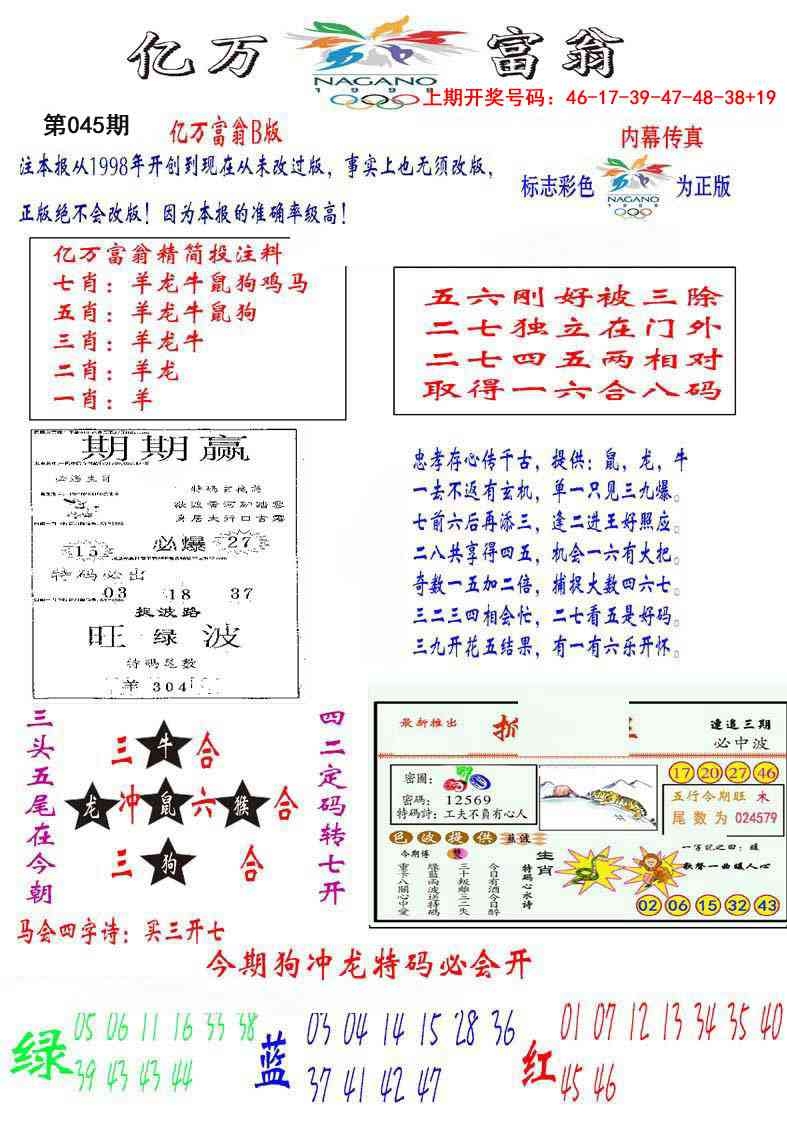 亿万富翁
NAGANO
1998
上期开奖号码：46-17-39-47-48-38+19
第045期
亿万富翁B版
内幕传真
注本报从1998年开创到现在从未改过版，事实上也无须改版，
正版绝不会改版！因为本报的准确率级高！
标志彩色
NAGANO
1998
为正版
亿万富翁精简投注料
七肖：羊龙牛鼠狗鸡马
五肖：羊龙牛鼠狗
三肖：羊龙牛
二肖：羊龙
一肖：羊
五六刚好被三除
二七独立在门外
二七四五两相对
取得一六合八码
期期赢
必爆
15
27
特码必出
03 18 37
捉波路
旺绿波
特码尾数
羊304
忠孝存心传千古，提供：鼠，龙，牛
一去不返有玄机，单一只见三九爆。
七前六后再添三，逢二进王好照应
二八共享得四五，机会一六有大把。
奇数一五加二倍，捕捉大数四六七。
三二三四相会忙，二七看五是好码。
三九开花五结果，有一有六乐开怀。
三头五尾在今朝
三牛合
龙冲鼠六猴合
三狗合
四二定码转七开
最新推出
連追三期
必中波
17 20 27 46
密圖：
密碼：12569
特碼詩：工夫不負有心人
五行今期旺 木
尾数为 024579
色波提供 藍波
今期博 雙
今日有酒今日醉
三十叛離三二失
綠藍兩波送特碼
重下八關心中愛
生肖
特碼心水诗
一字记之曰：暖
歌聲一曲暖人心
02 06 15 32 43
马会四字诗：买三开七
今期狗冲龙特码必会开
绿
05 06 11 16 33 38
39 43 43 44
蓝
03 04 14 15 28 36
37 41 42 47
红
01 07 12 13 34 35 40
45 46